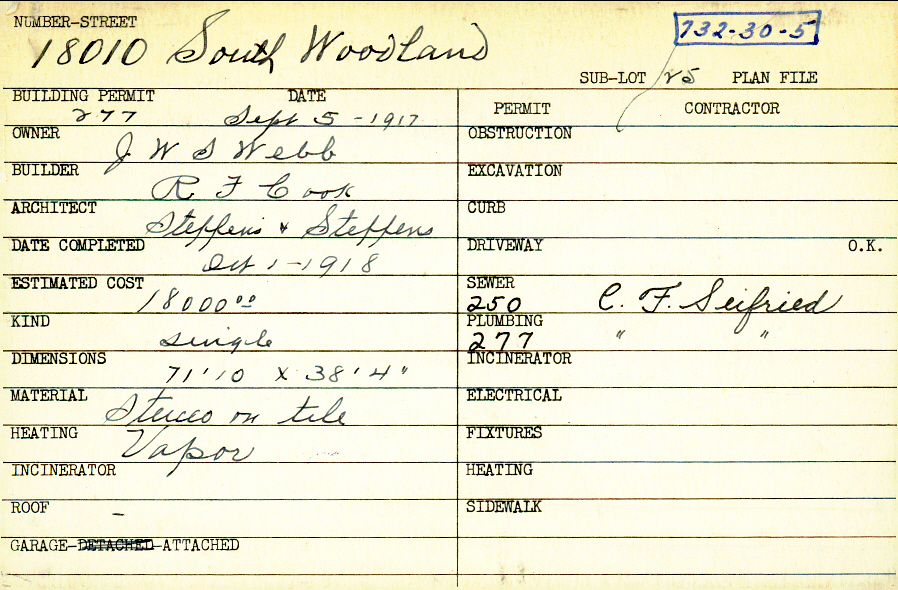 NUMBER-STREET
18010 South Woodland
732-30-5
SUB-LOT 25 PLAN FILE
BUILDING PERMIT DATE
277 Sept 5-1917
OWNER J W S Webb
BUILDER R F Cook
ARCHITECT Steffens & Steffens
DATE COMPLETED Oct 1-1918
ESTIMATED COST 18000.00
KIND single
DIMENSIONS 71'10 x 38'4"
MATERIAL Stucco on tile
HEATING Vapor
INCINERATOR
ROOF -
GARAGE-DETACHED-ATTACHED
PERMIT CONTRACTOR
OBSTRUCTION
EXCAVATION
CURB
DRIVEWAY O.K.
SEWER
250 C. F. Seifried
PLUMBING
277 " "
INCINERATOR
ELECTRICAL
FIXTURES
HEATING
SIDEWALK